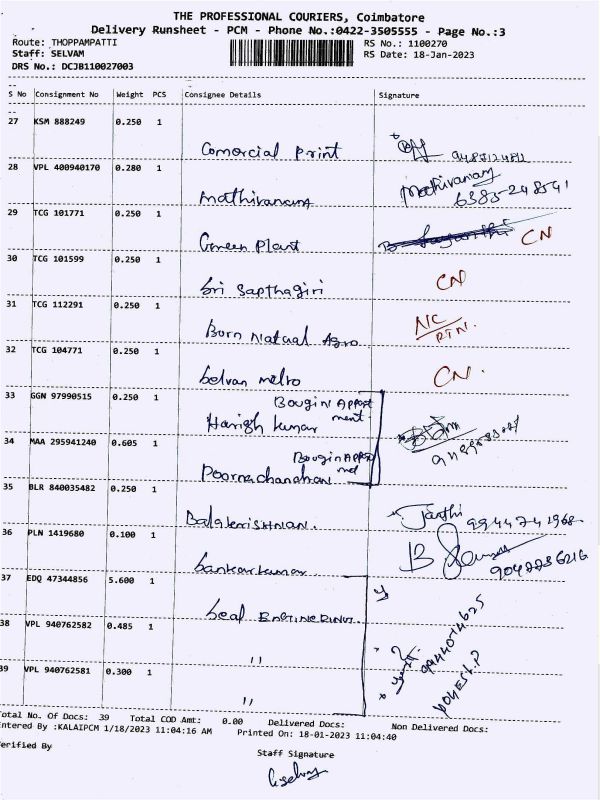 THE PROFESSIONAL COURIERS, Coimbatore
Delivery Runsheet - PCM - Phone No.:0422-3505555 - Page No.:3
Route: THOPPAMPATTI RS No.: 1100270
Staff: SELVAM RS Date: 18-Jan-2023
DRS No.: DCJB110027003
S No Consignment No Weight PCS Consignee Details Signature
27 KSM 888249 0.250 1
Comercial Print
28 VPL 400940170 0.280 1
Mathivanang Mathivanang
6385-248541
29 TCG 101771 0.250 1
Green Plant CN
30 TCG 101599 0.250 1
Sri Sapthagiri CN
31 TCG 112291 0.250 1
Born Natual Agro NC
RTN.
32 TCG 104771 0.250 1
Selvan metro CN.
33 GGN 97990515 0.250 1
Harish kumar
34 MAA 295941240 0.605 1
Poornachandran
35 BLR 840035482 0.250 1
Balakrishnan. Janthi 9944741968
36 PLN 1419680 0.100 1
Sankarkumar 9042236216
37 EDQ 47344856 5.600 1
Seal
38 VPL 940762582 0.485 1
"
39 VPL 940762581 0.300 1
"
Total No. Of Docs: 39 Total COD Amt: 0.00 Delivered Docs: Non Delivered Docs:
Entered By :KALAIPCM 1/18/2023 11:04:16 AM Printed On: 18-01-2023 11:04:40
Verified By
Staff Signature